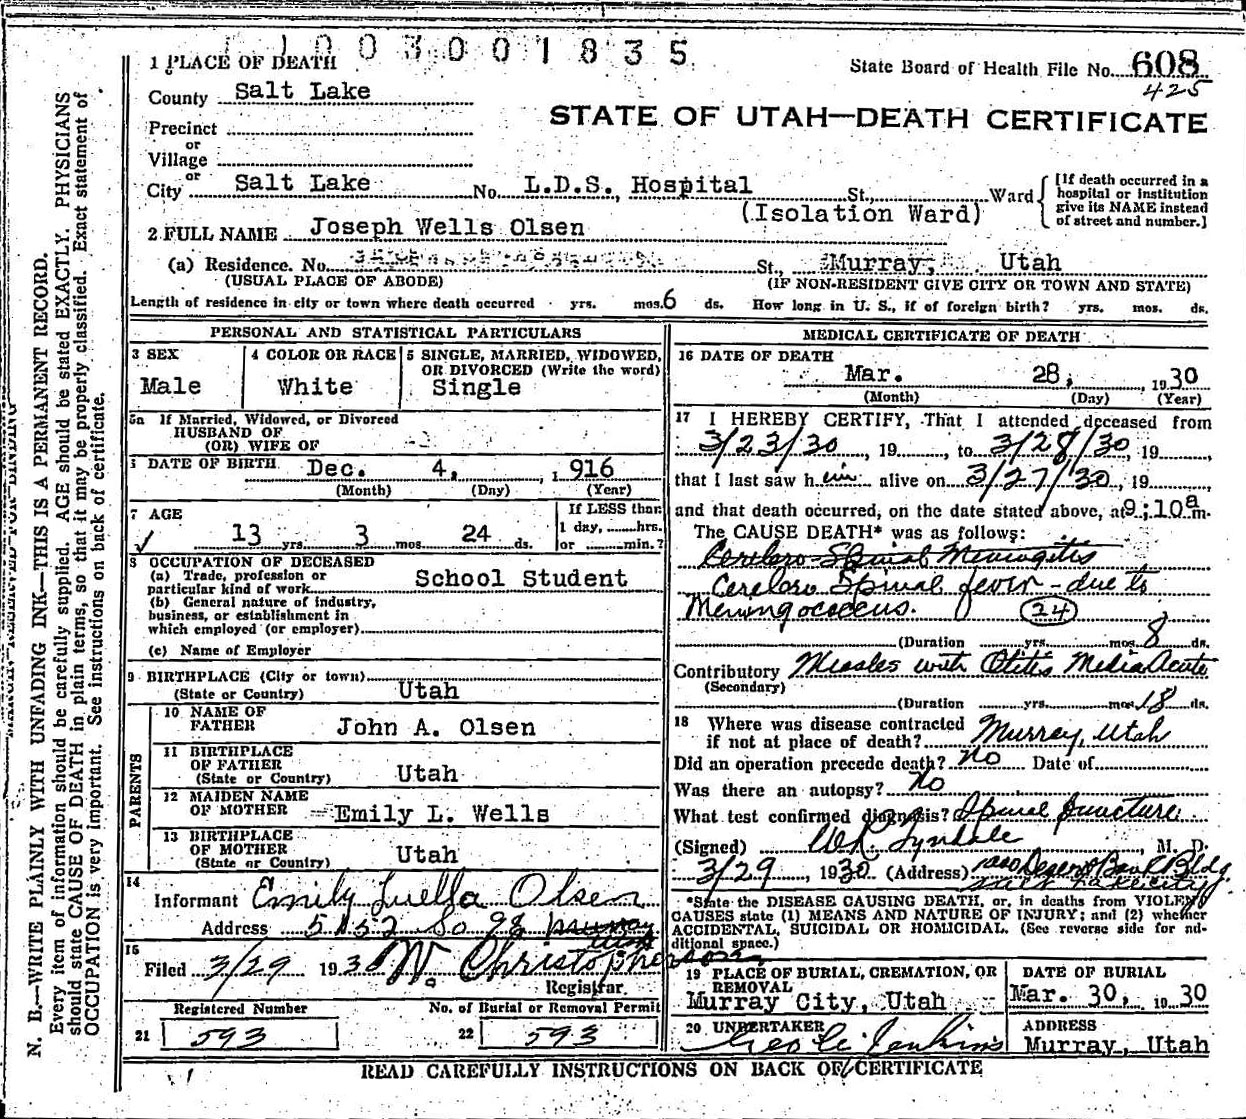 1003001835
1 PLACE OF DEATH
State Board of Health File No. 608
425
County Salt Lake
STATE OF UTAH—DEATH CERTIFICATE
Precinct
or
Village
or
City Salt Lake No. L.D.S. Hospital St., Ward
[If death occurred in a
hospital or institution
give its NAME instead
of street and number.]
(Isolation Ward)
2 FULL NAME Joseph Wells Olsen
(a) Residence. No. St., Murray, Utah
(USUAL PLACE OF ABODE) (IF NON-RESIDENT GIVE CITY OR TOWN AND STATE)
Length of residence in city or town where death occurred yrs. mos. 6 ds. How long in U. S., if of foreign birth? yrs. mos. ds.
PERSONAL AND STATISTICAL PARTICULARS
3 SEX
Male
4 COLOR OR RACE
White
5 SINGLE, MARRIED, WIDOWED,
OR DIVORCED (Write the word)
Single
5a If Married, Widowed, or Divorced
HUSBAND OF
(OR) WIFE OF
DATE OF BIRTH Dec. 4, 1916
(Month) (Day) (Year)
7 AGE
13 yrs. 3 mos. 24 ds.
If LESS than
1 day, hrs.
or min.?
8 OCCUPATION OF DECEASED
(a) Trade, profession or
particular kind of work School Student
(b) General nature of industry,
business, or establishment in
which employed (or employer)
(c) Name of Employer
9 BIRTHPLACE (City or town)
(State or Country) Utah
PARENTS
10 NAME OF
FATHER John A. Olsen
11 BIRTHPLACE
OF FATHER
(State or Country) Utah
12 MAIDEN NAME
OF MOTHER Emily L. Wells
13 BIRTHPLACE
OF MOTHER
(State or Country) Utah
14
Informant Emily Luella Olsen
Address 5152 So 9E Murray
Utah
15
Filed 3/29 1930 W. Christopherson
Registrar.
Registered Number
21 593
No. of Burial or Removal Permit
22 593
MEDICAL CERTIFICATE OF DEATH
16 DATE OF DEATH
Mar. 28, 1930
(Month) (Day) (Year)
17 I HEREBY CERTIFY, That I attended deceased from
3/23/30, 19, to 3/28/30, 19,
that I last saw him alive on 3/27/30, 19,
and that death occurred, on the date stated above, at 9:10 a m.
The CAUSE DEATH* was as follows:
Cerebro Spinal Meningitis
Cerebro Spinal fever - due to
Meningococcus. 24
(Duration yrs. mos. 8 ds.
Contributory Measles with Otitis Media Acute
(Secondary)
(Duration yrs. mos. 18 ds.
18 Where was disease contracted
if not at place of death? Murray, Utah
Did an operation precede death? No Date of
Was there an autopsy? No
What test confirmed diagnosis? Spinal puncture
(Signed) WR Tyndale, M. D.
3/29, 1930 (Address) 1000 Deseret Bank Bldg.
Salt Lake City
*State the DISEASE CAUSING DEATH, or, in deaths from VIOLENT
CAUSES state (1) MEANS AND NATURE OF INJURY; and (2) whether
ACCIDENTAL, SUICIDAL OR HOMICIDAL. (See reverse side for ad-
ditional space.)
19 PLACE OF BURIAL, CREMATION, OR
REMOVAL
Murray City, Utah
DATE OF BURIAL
Mar. 30, 1930
20 UNDERTAKER
Jenkins
ADDRESS
Murray, Utah
READ CAREFULLY INSTRUCTIONS ON BACK OF CERTIFICATE
N. B.—WRITE PLAINLY WITH UNFADING INK—THIS IS A PERMANENT RECORD.
Every item of information should be carefully supplied. AGE should be stated EXACTLY. PHYSICIANS
should state CAUSE OF DEATH in plain terms, so that it may be properly classified. Exact statement of
OCCUPATION is very important. See instructions on back of certificate.